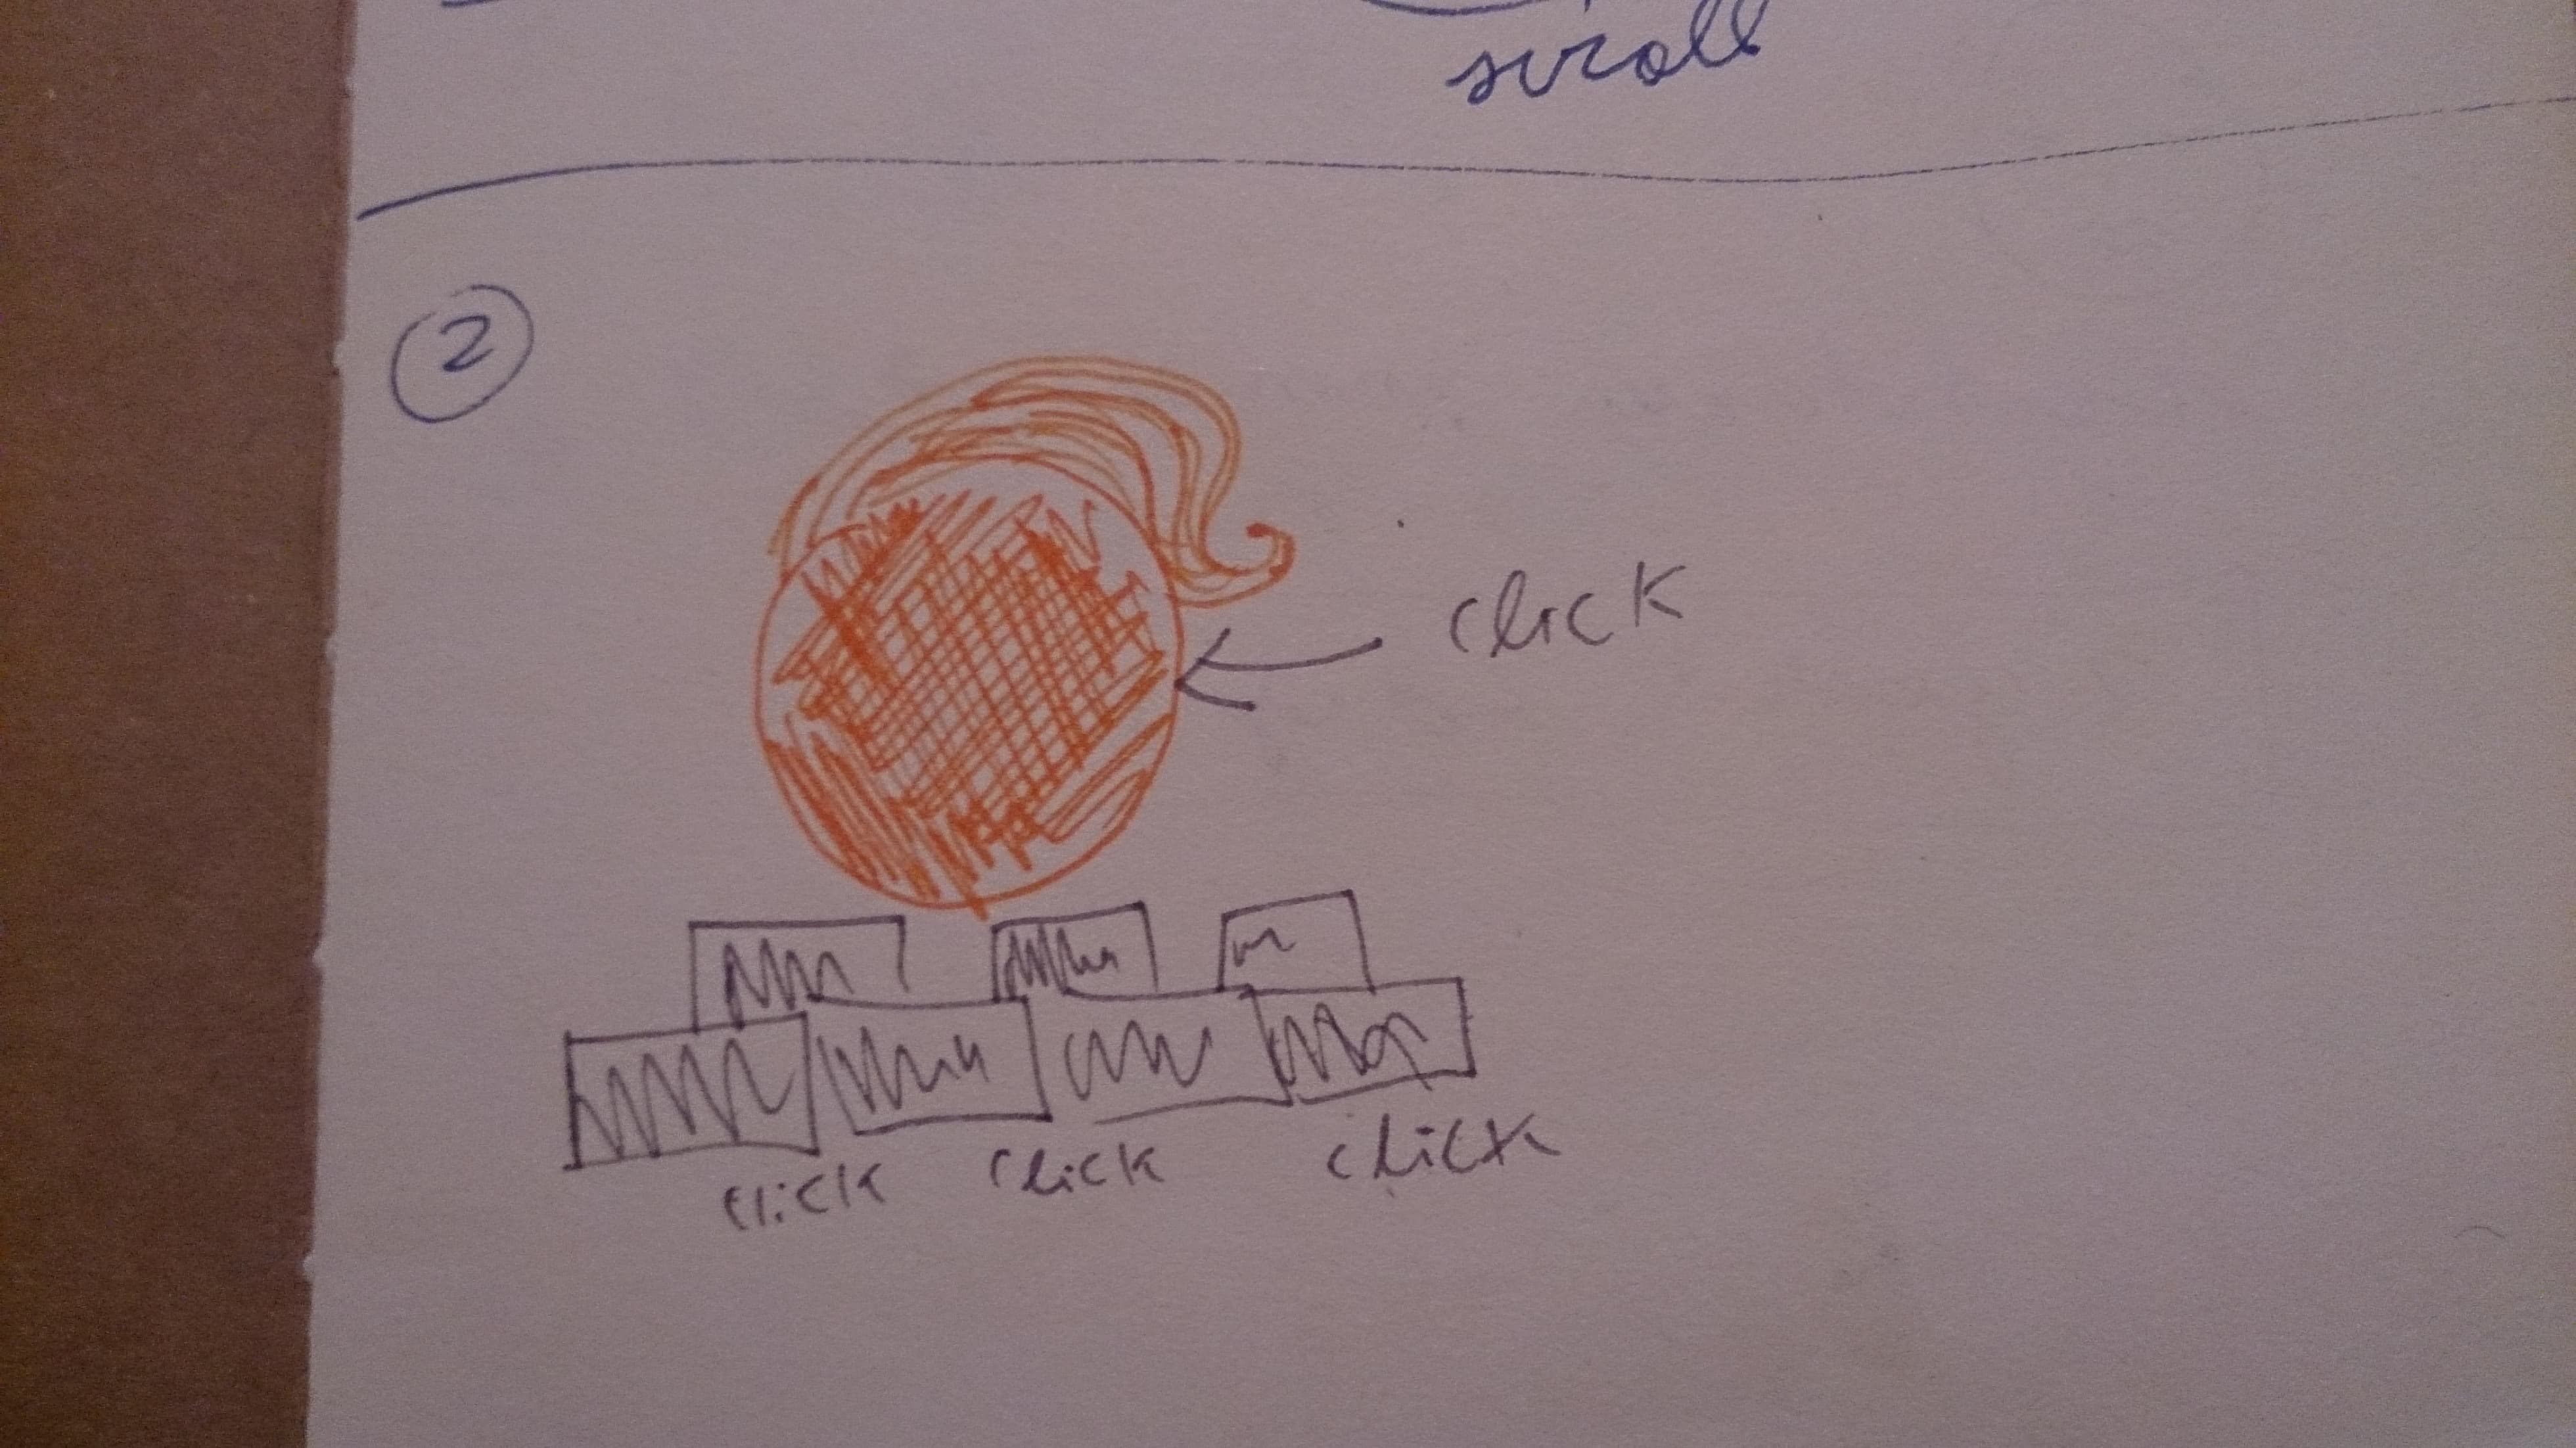 scroll
2
click
click click click